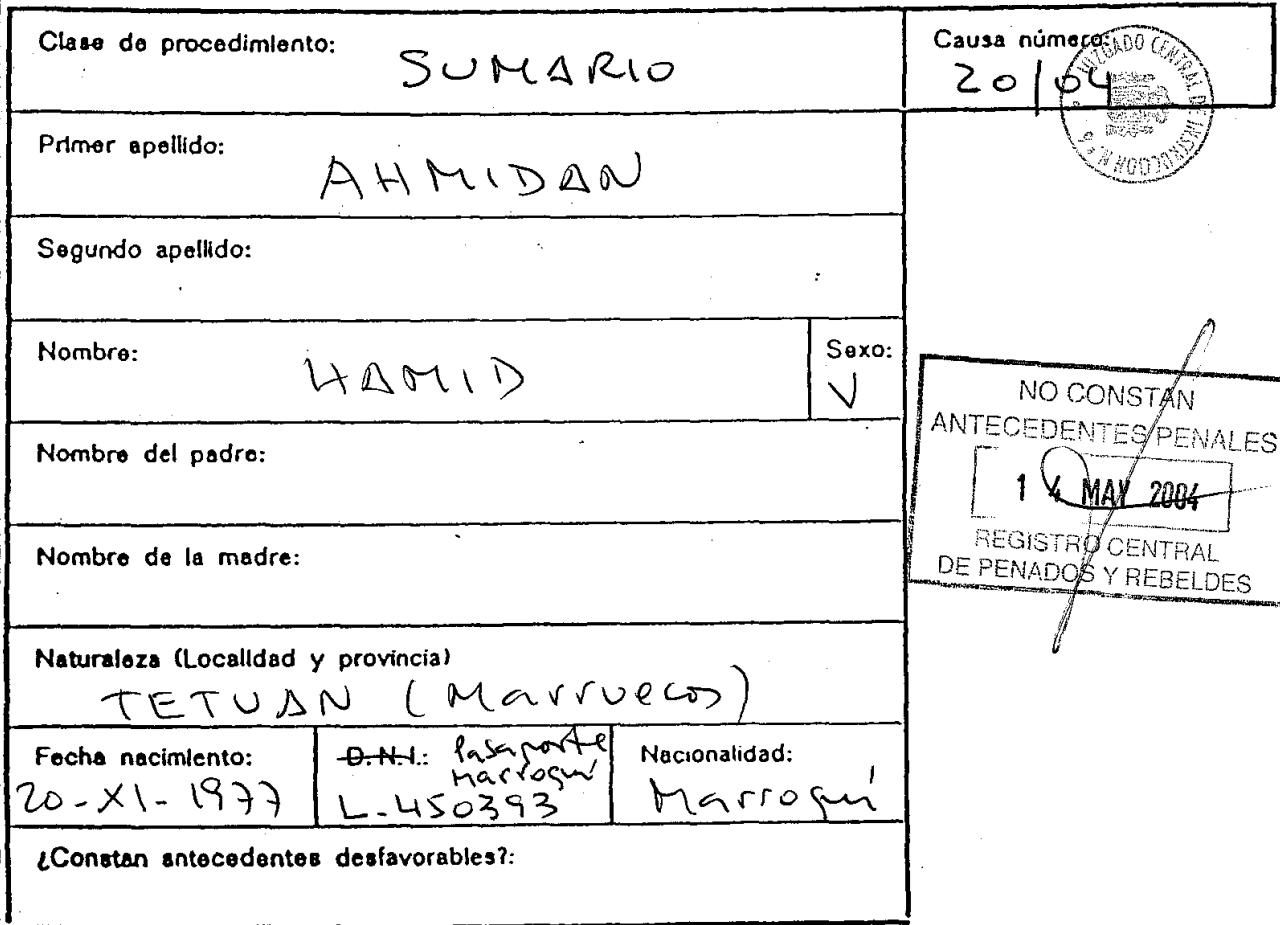 Clase de procedimiento:
SUMARIO
Causa número:
20/04
JUZGADO CENTRAL DE INSTRUCCION N.º 6
Primer apellido:
AHMIDAN
Segundo apellido:
Nombre:
HAMID
Sexo:
V
NO CONSTAN
ANTECEDENTES PENALES
14 MAY 2004
REGISTRO CENTRAL
DE PENADOS Y REBELDES
Nombre del padre:
Nombre de la madre:
Naturaleza (Localidad y provincia)
TETUAN (Marruecos)
Fecha nacimiento:
20-XI-1977
D.N.I.: Pasaporte
Marroquí
L-450393
Nacionalidad:
Marroquí
¿Constan antecedentes desfavorables?: